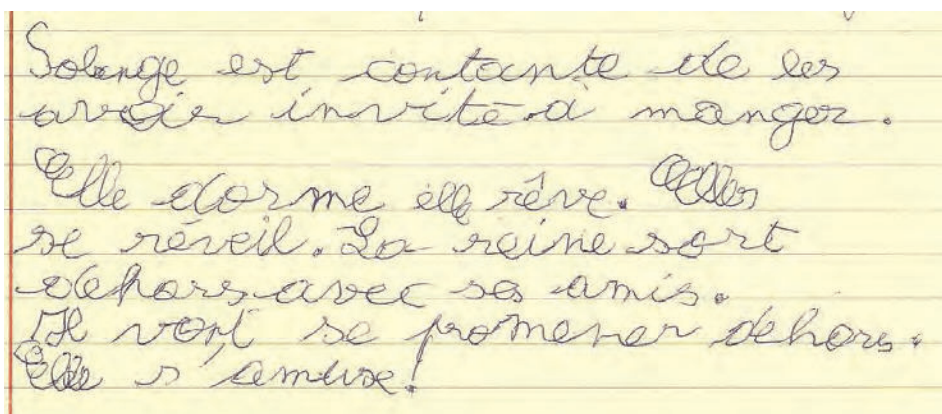 Solange est contante de les
avoir invité à manger.
Elle dorme elle rêve. Elles
se réveil. La reine sort
dehors avec ses amis.
Il vont se promener dehors.
Elle s'amuse!